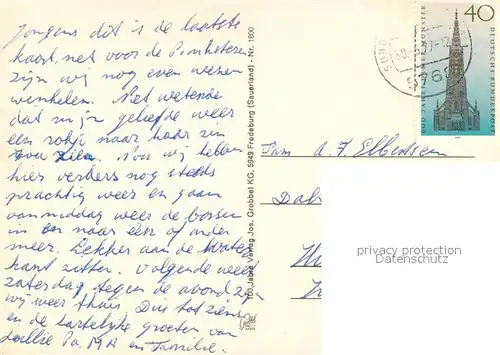 Jongens dit is de laatste
kaart net voor de Pinksteren
zijn wij nog even wezen
winkelen. Niet wetende
dat mijn geliefde weer
een rokje naar haar zin
zou zien. Nou wij hebben
hier verders nog steeds
prachtig weer en gaan
vanmiddag weer de bossen
in en naar één of ander
meer. Lekker aan de water
kant zitten. Volgende week
zaterdag tegen de avond zijn
wij weer thuis. Dus tot ziens
en de hartelijke groeten van
jullie Pa, MA en Familie.
100 Jahre Verlag Jos. Grobbel KG, 5949 Fredeburg (Sauerland) - Nr. 1800
40
600 JAHRE ULMER MÜNSTER
DEUTSCHE BUNDESPOST
Fam A. J. Elbertsen
privacy protection
Datenschutz